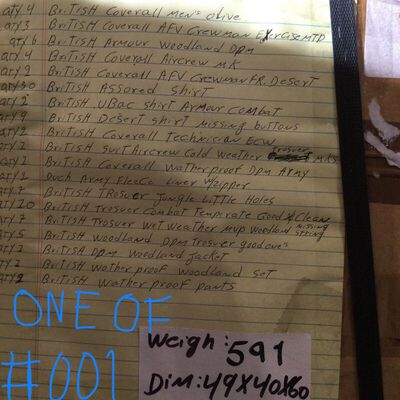 qty 4 BritisH Coverall men's olive
qty 3 BritisH Coverall AFV Crewman ExerciseMTD
qty 6 BritisH Armour Woodland Dpm
qty 4 BritisH Coverall Aircrew MK
qty 2 BritisH Coverall AFV CrewmanFR. Desert
qty 30 BritisH Assored Shirt
qty 2 BritisH UBac Shirt Armour Combat
qty 9 BritisH Desert shirt missing buttons
qty 2 BritisH Coverall Technician ECW
qty 2 BritisH Suit Aircrew Cold Weather trouser MK3
qty 2 BritisH Coverall Watherproof Dpm Army
qty 2 Duch Army Fleece Liner W/zipper
qty 7 BritisH Trouser Jungle Little Holes
qty 20 BritisH Trouser Combat Temperate Good & Clean
qty 7 BritisH Trouser Wetweather mvp Woodland missing string
qty 5 BritisH Woodland Dpm Trouser good one's
qty 2 BritisH Dpm Woodland Jacket
qty 2 BritisH Watherproof Woodland Set
qty 2 BritisH Watherproof pants
ONE OF
#001
Weigh: 591
Dim: 49X40X60